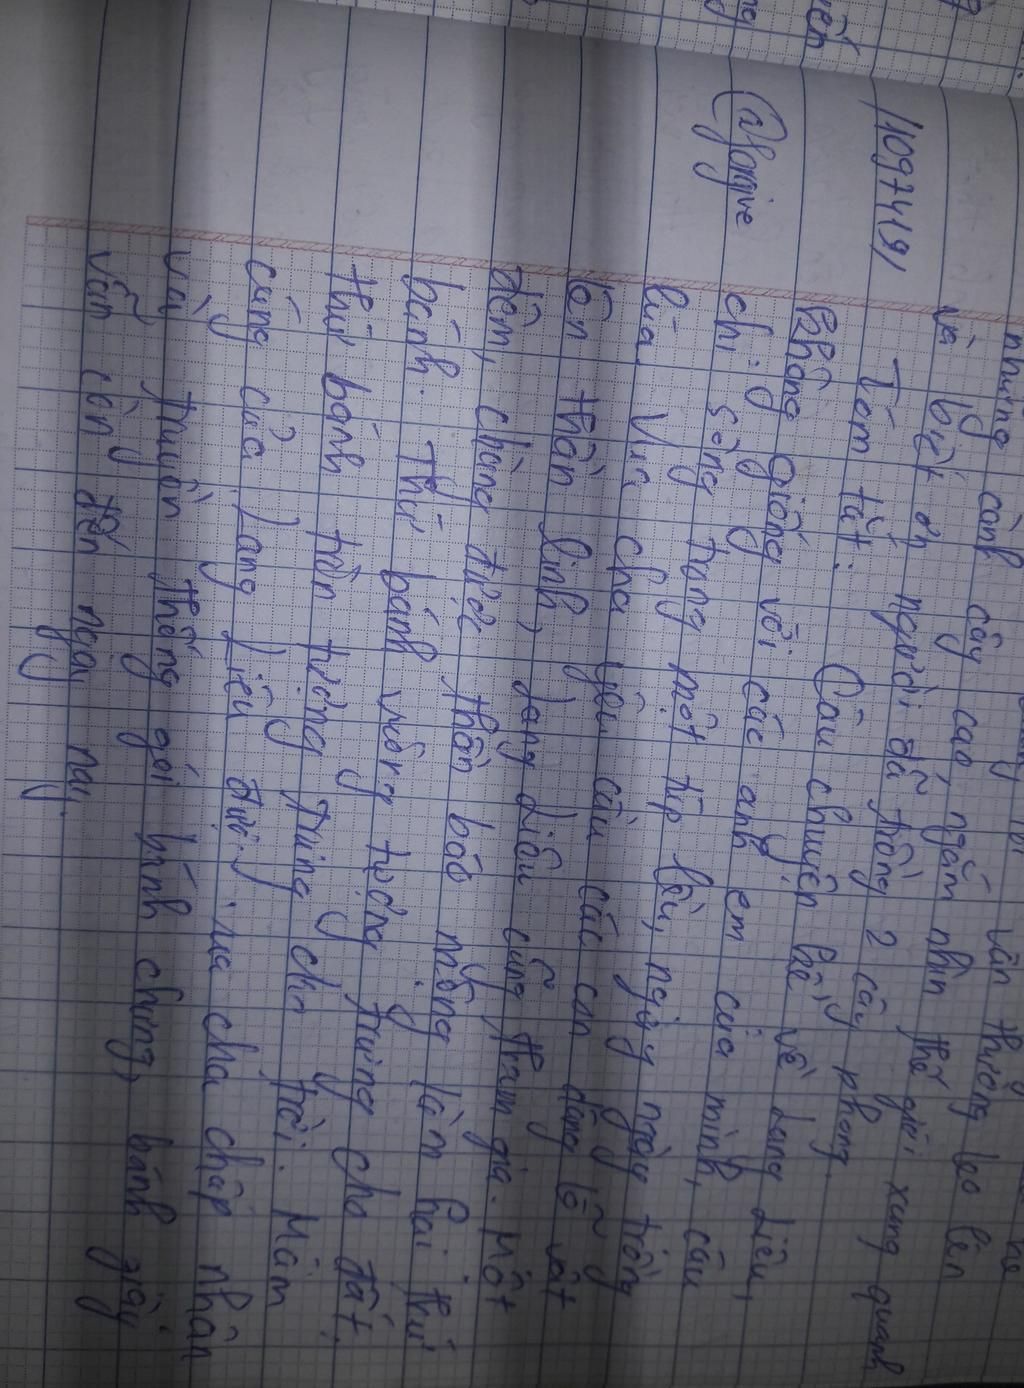 những cành cây cao, ngắm nhìn thế giới xung quanh
và biết ơn người đã trồng 2 cây phong.
/1097419/
Tóm tắt: Câu chuyện kể về Lang Liêu,
Không giống với các anh em của mình, cậu
@forgive
chỉ sống trong một túp lều, ngày ngày trồng
lúa. Vua cha yêu cầu các con dâng lễ vật
lên thần linh, Lang Liêu cũng tham gia. Một
đêm, chàng được thần báo mộng làm hai thứ
bánh. Thứ bánh vuông tượng trưng cho đất,
thứ bánh tròn tượng trưng cho trời. Mâm
cúng của Lang Liêu được vua cha chấp nhận
và truyền thống gói bánh chưng, bánh giầy
vẫn còn đến ngày nay.